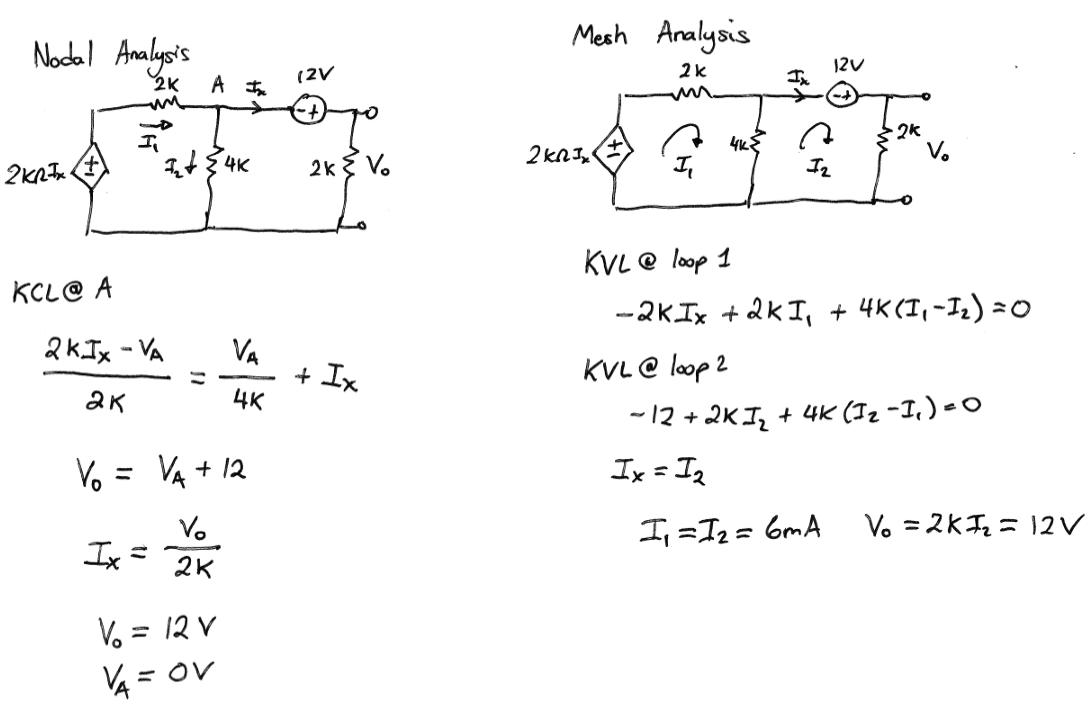 Nodal Analysis
2K A Ix 12V
- +
I₁
2KΩIx ± I₂ 4K 2K Vo
KCL@ A
(2KIx - VA)/2K = VA/4K + Ix
Vo = VA + 12
Ix = Vo/2K
Vo = 12 V
VA = 0V
Mesh Analysis
2K Ix 12V
- +
2KΩIx ± I₁ 4K I₂ 2K Vo
KVL @ loop 1
-2KIx + 2KI₁ + 4K(I₁-I₂) = 0
KVL @ loop 2
-12 + 2KI₂ + 4K(I₂-I₁) = 0
Ix = I₂
I₁ = I₂ = 6mA Vo = 2KI₂ = 12V